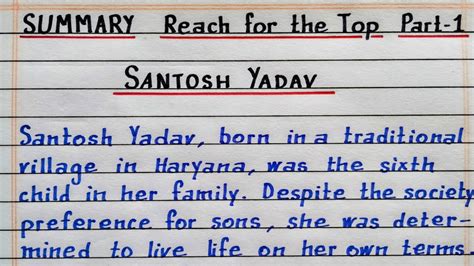 SUMMARY Reach for the Top Part-1
SANTOSH YADAV
Santosh Yadav, born in a traditional
village in Haryana, was the sixth
child in her family. Despite the society
preference for sons, she was deter-
mined to live life on her own terms